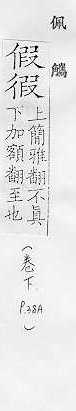 佩觿
假徦
上簡雅翻不真
下加額翻至也
(卷下 P.38A)